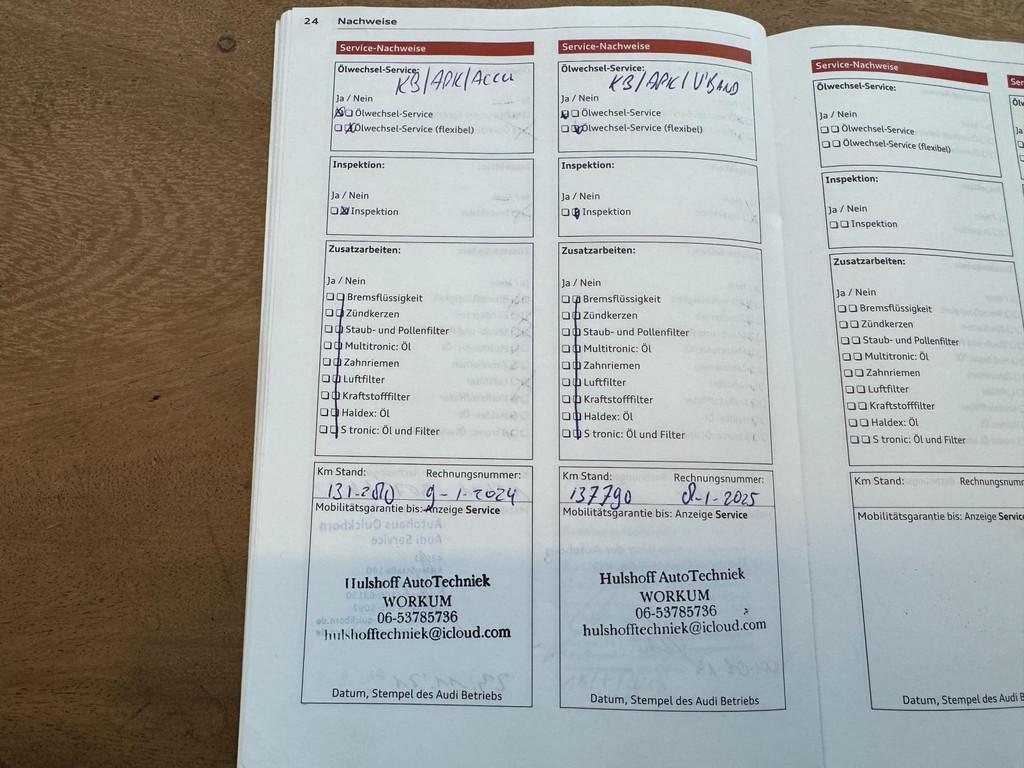 24 Nachweise
Service-Nachweise
Ölwechsel-Service:
KB/APK/Accu
Ja / Nein
Ölwechsel-Service
Ölwechsel-Service (flexibel)
Inspektion:
Ja / Nein
Inspektion
Zusatzarbeiten:
Ja / Nein
Bremsflüssigkeit
Zündkerzen
Staub- und Pollenfilter
Multitronic: Öl
Zahnriemen
Luftfilter
Kraftstofffilter
Haldex: Öl
S tronic: Öl und Filter
Km Stand: Rechnungsnummer:
9-1-2024
Mobilitätsgarantie bis: Anzeige Service
Hulshoff AutoTechniek
WORKUM
06-53785736
hulshofftechniek@icloud.com
Datum, Stempel des Audi Betriebs
Service-Nachweise
Ölwechsel-Service:
KB/APK/V'BAND
Ja / Nein
Ölwechsel-Service
Ölwechsel-Service (flexibel)
Inspektion:
Ja / Nein
Inspektion
Zusatzarbeiten:
Ja / Nein
Bremsflüssigkeit
Zündkerzen
Staub- und Pollenfilter
Multitronic: Öl
Zahnriemen
Luftfilter
Kraftstofffilter
Haldex: Öl
S tronic: Öl und Filter
Km Stand: Rechnungsnummer:
137790 8-1-2025
Mobilitätsgarantie bis: Anzeige Service
Hulshoff AutoTechniek
WORKUM
06-53785736
hulshofftechniek@icloud.com
Datum, Stempel des Audi Betriebs
Service-Nachweise
Ölwechsel-Service:
Ja / Nein
Ölwechsel-Service
Ölwechsel-Service (flexibel)
Inspektion:
Ja / Nein
Inspektion
Zusatzarbeiten:
Ja / Nein
Bremsflüssigkeit
Zündkerzen
Staub- und Pollenfilter
Multitronic: Öl
Zahnriemen
Luftfilter
Kraftstofffilter
Haldex: Öl
S tronic: Öl und Filter
Km Stand: Rechnungsnumm
Mobilitätsgarantie bis: Anzeige Servic
Datum, Stempel des Audi B